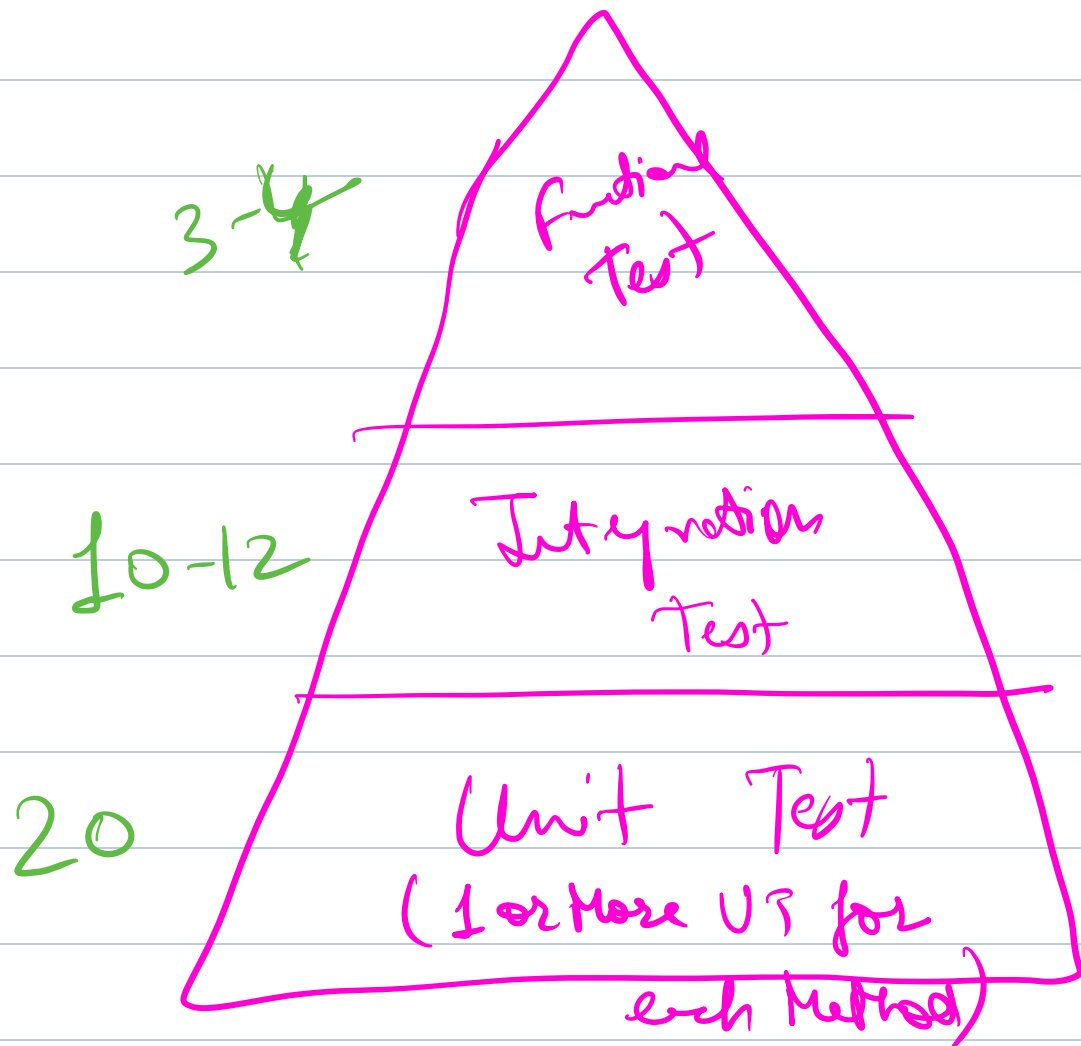 Functional
Test
3-4
Integration
Test
10-12
Unit Test
20
(1 or More UT for
each Method)